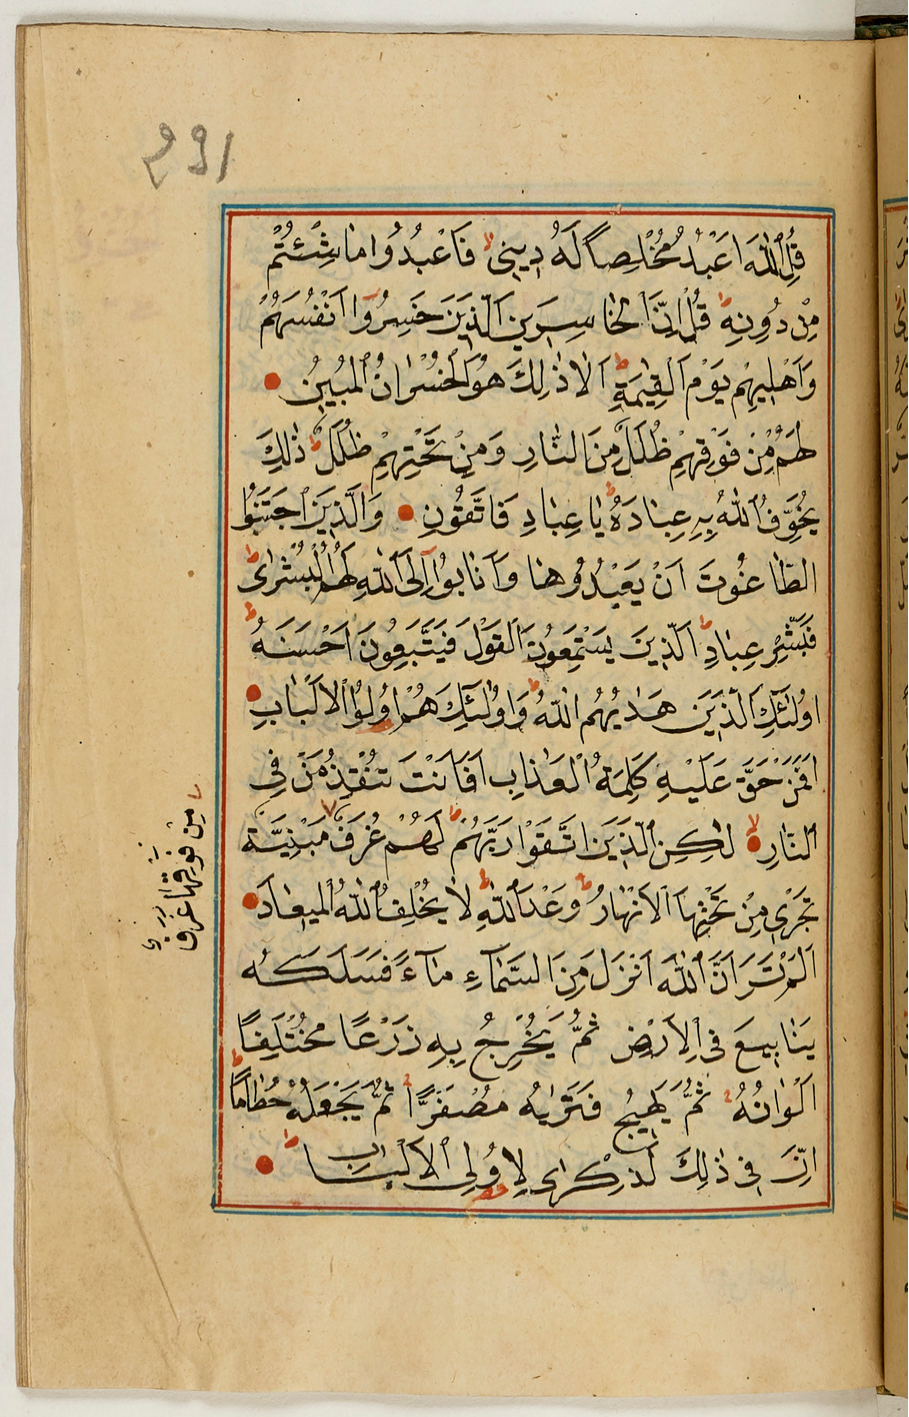 قُلِ اللّٰهَ اَعْبُدُ مُخْلِصًا لَهُ دِينِى فَاعْبُدُوا مَا شِئْتُمْ
مِنْ دُونِهِ قُلْ اِنَّ الْخَاسِرِينَ الَّذِينَ خَسِرُوا اَنْفُسَهُمْ
وَاَهْلِيهِمْ يَوْمَ الْقِيٰمَةِ اَلَا ذٰلِكَ هُوَ الْخُسْرَانُ الْمُبِينُ
لَهُمْ مِنْ فَوْقِهِمْ ظُلَلٌ مِنَ النَّارِ وَمِنْ تَحْتِهِمْ ظُلَلٌ ذٰلِكَ
يُخَوِّفُ اللّٰهُ بِهِ عِبَادَهُ يَا عِبَادِ فَاتَّقُونِ وَالَّذِينَ اجْتَنَبُوا
الطَّاغُوتَ اَنْ يَعْبُدُوهَا وَاَنَابُوا اِلَى اللّٰهِ لَهُمُ الْبُشْرٰى
فَبَشِّرْ عِبَادِ الَّذِينَ يَسْتَمِعُونَ الْقَوْلَ فَيَتَّبِعُونَ اَحْسَنَهُ
اُولٰئِكَ الَّذِينَ هَدٰيهُمُ اللّٰهُ وَاُولٰئِكَ هُمْ اُولُوا الْاَلْبَابِ
اَفَمَنْ حَقَّ عَلَيْهِ كَلِمَةُ الْعَذَابِ اَفَاَنْتَ تُنْقِذُ مَنْ فِى
النَّارِ لٰكِنِ الَّذِينَ اتَّقَوْا رَبَّهُمْ لَهُمْ غُرَفٌ مَبْنِيَّةٌ
تَجْرِى مِنْ تَحْتِهَا الْاَنْهَارُ وَعْدَ اللّٰهِ لَا يُخْلِفُ اللّٰهُ الْمِيعَادَ
اَلَمْ تَرَ اَنَّ اللّٰهَ اَنْزَلَ مِنَ السَّمَآءِ مَآءً فَسَلَكَهُ
يَنَابِيعَ فِى الْاَرْضِ ثُمَّ يُخْرِجُ بِهِ زَرْعًا مُخْتَلِفًا
اَلْوَانُهُ ثُمَّ يَهِيجُ فَتَرٰيهُ مُصْفَرًّا ثُمَّ يَجْعَلُهُ حُطَامًا
اِنَّ فِى ذٰلِكَ لَذِكْرٰى لِاُولِى الْاَلْبَابِ
مِنْ فَوْقِهَا غُرَفٌ